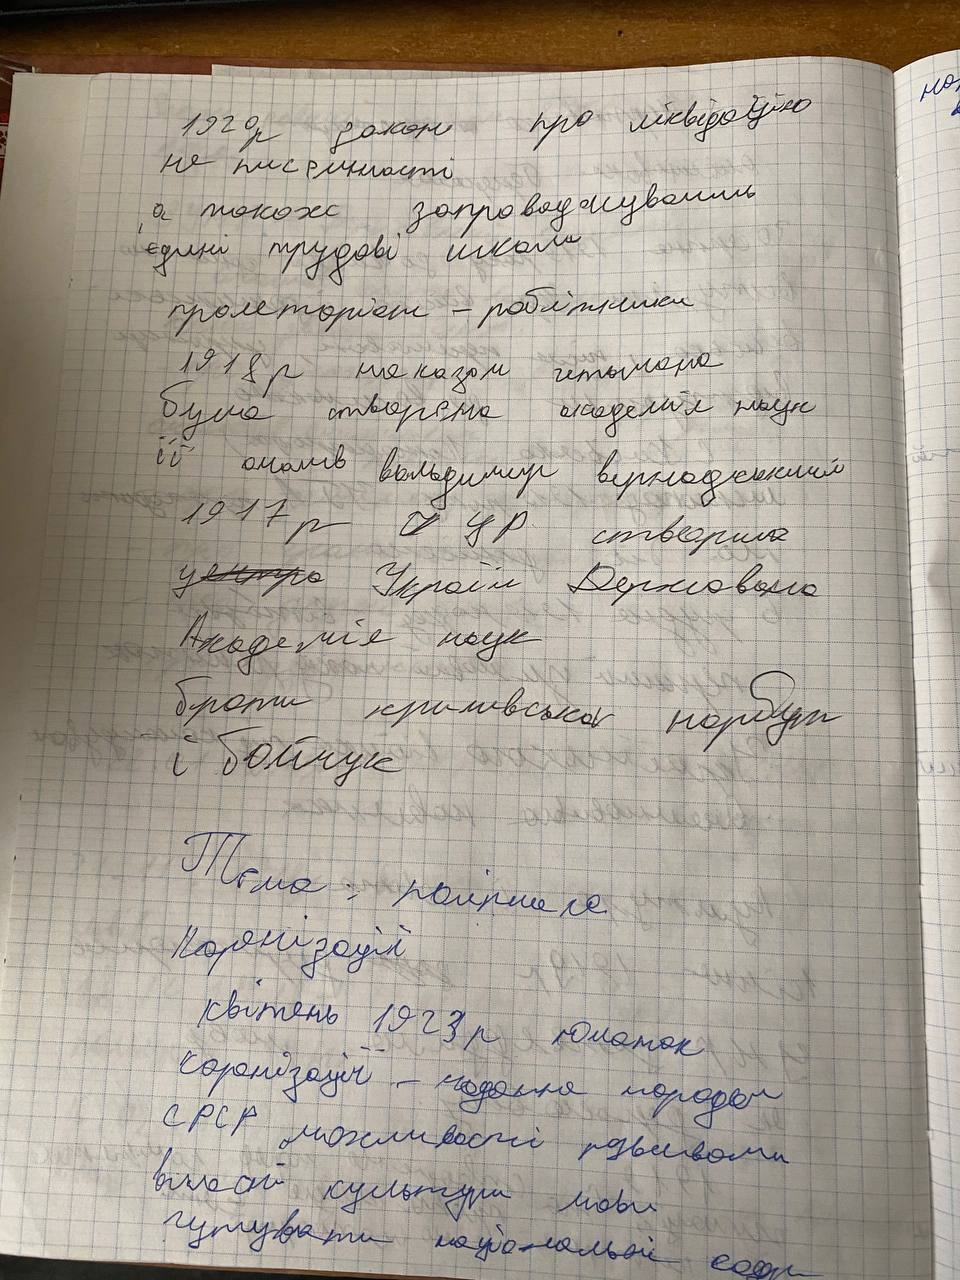 1920р закон про ліквідацію
не писемності
а також запроваджували
єдині трудові школи
пролетаріат – робітники
1918р наказом гетьмана
була створена академія наук
її очолив вольдимир вернадський
1917р ЦР створила
Україн Державна
Академія наук
брати кричевські нарбут
і бойчук
Тема:
Коренізації
квітень 1923р початок
коренізації – надання народам
СРСР можливості розвивати
власні культури мови
гутувати національні кадри